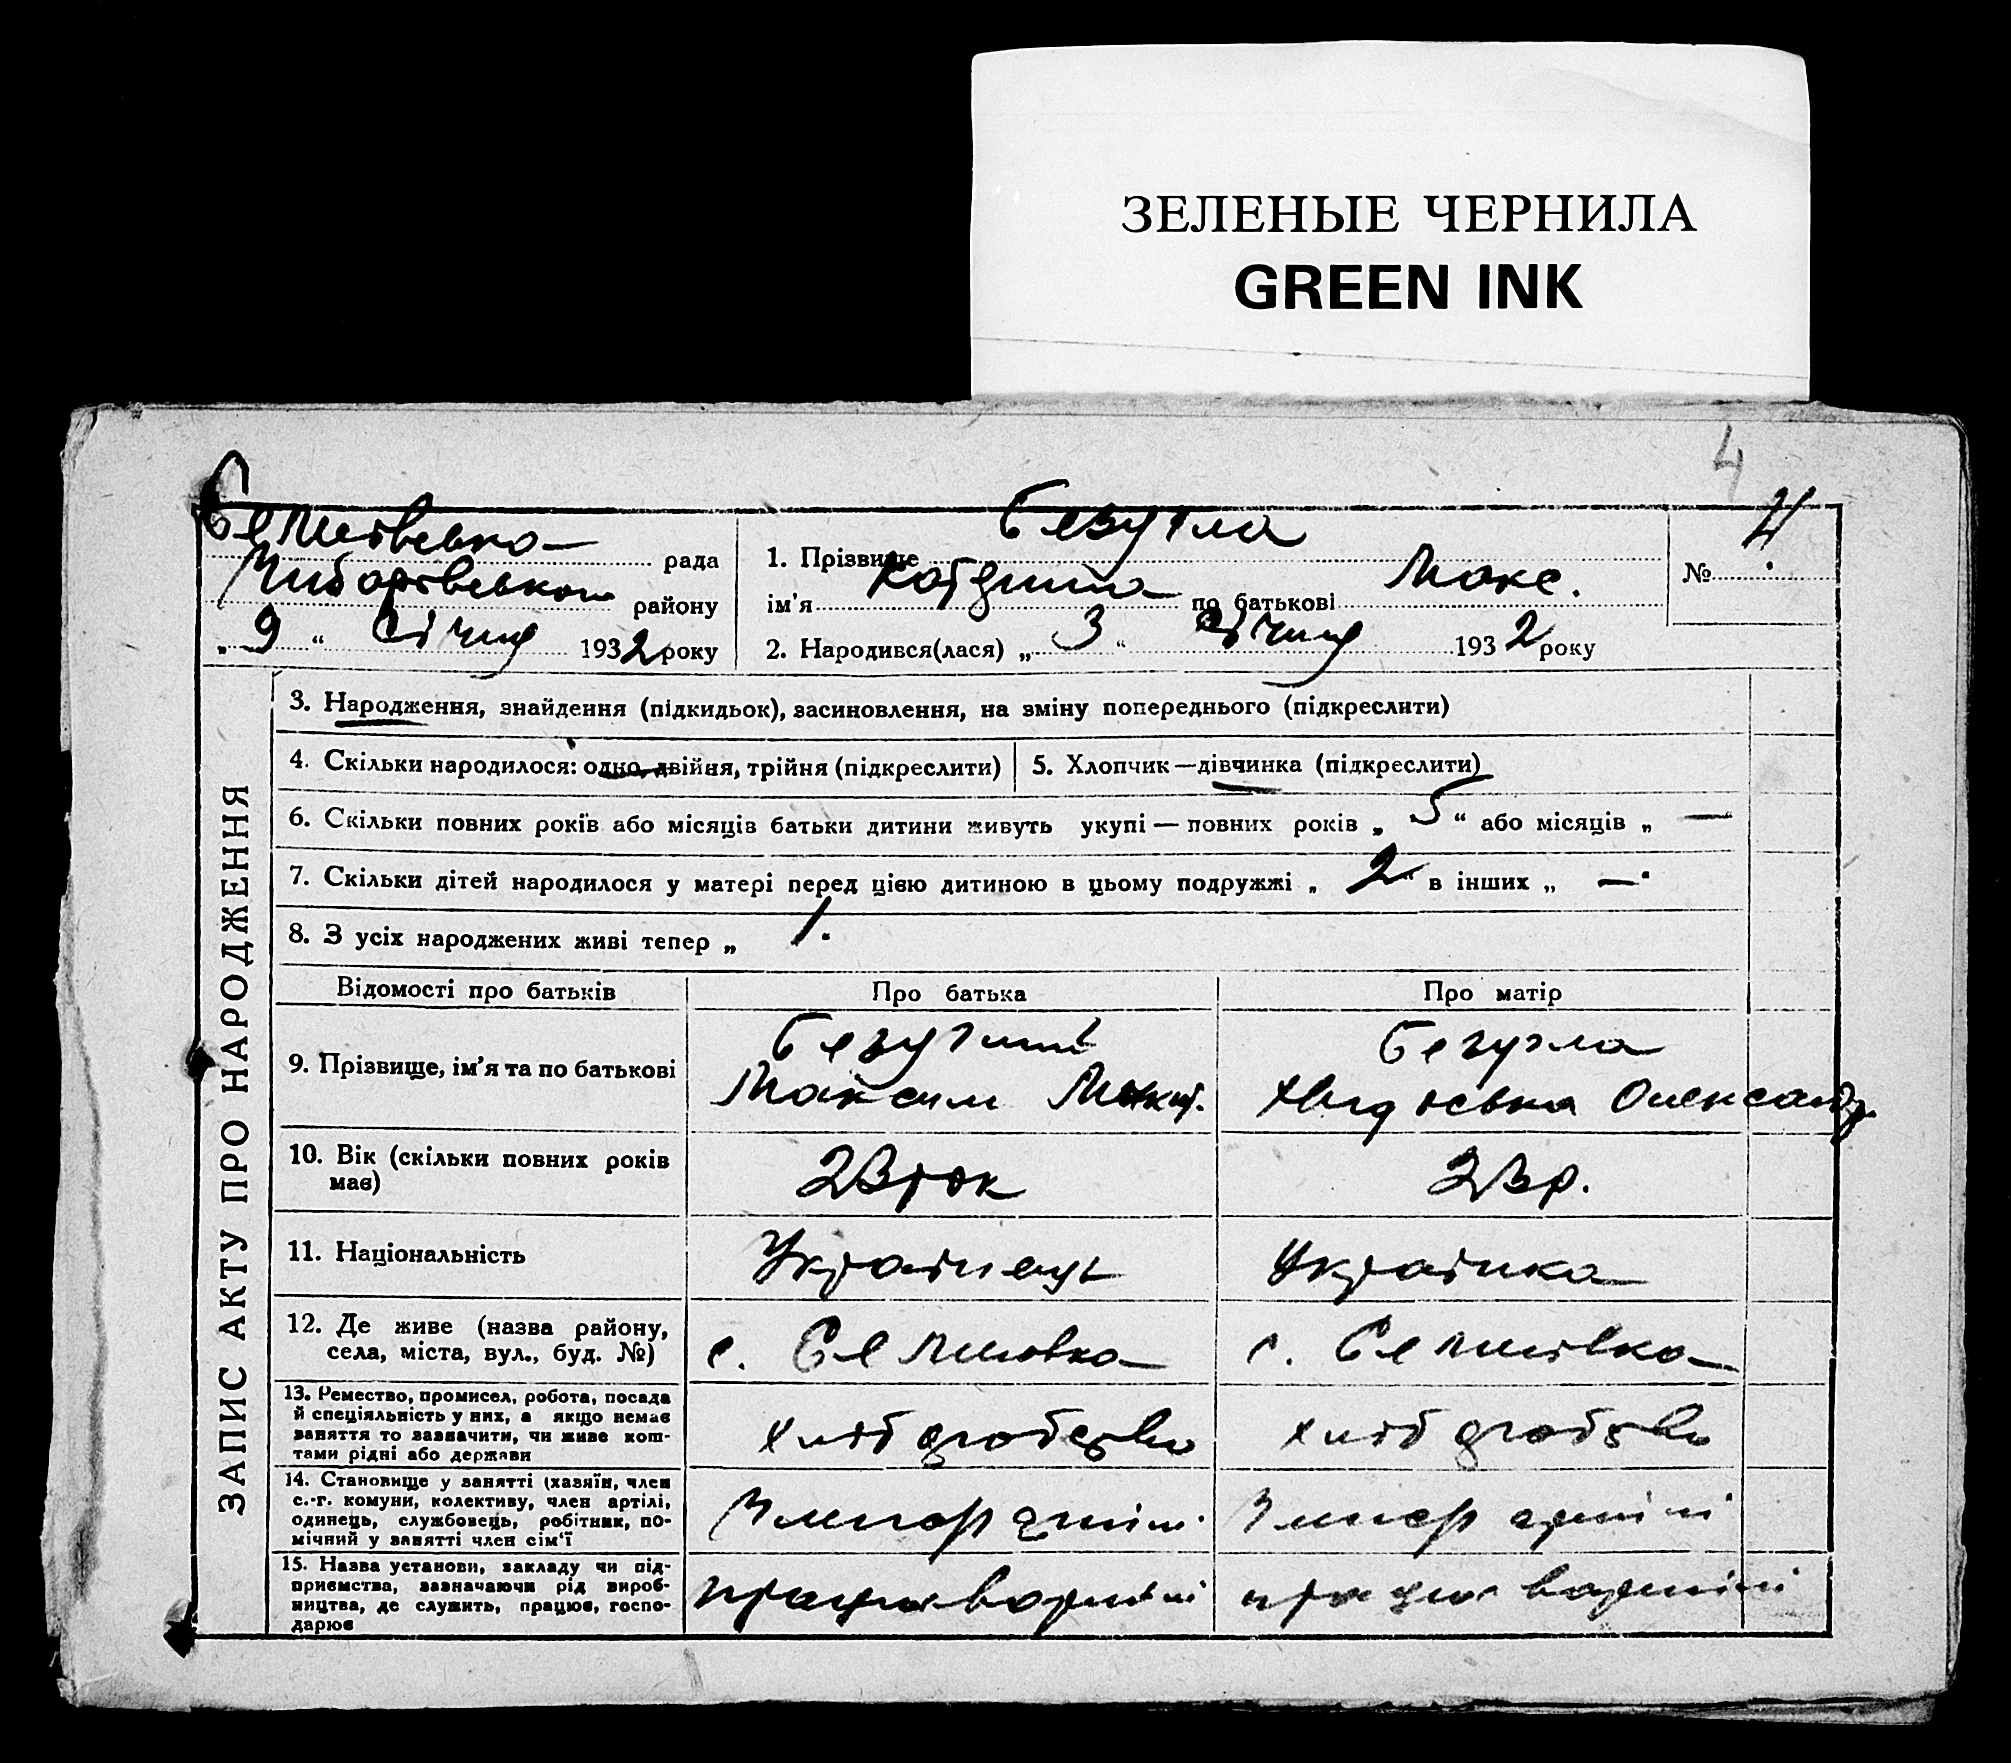 ЗЕЛЕНЫЕ ЧЕРНИЛА
GREEN INK
4
рада
району
„ 9 “ Січня 1932 року
1. Прізвище Безугла
ім'я Катерина по батькові Макс.
2. Народився(лася) „ 3 “ Січня 1932 року
№ 4
ЗАПИС АКТУ ПРО НАРОДЖЕННЯ
3. Народження, знайдення (підкидьок), засиновлення, на зміну попереднього (підкреслити)
4. Скільки народилося: одно, двійня, трійня (підкреслити)
5. Хлопчик—дівчинка (підкреслити)
6. Скільки повних років або місяців батьки дитини живуть укупі — повних років „ 5 “ або місяців „ —
7. Скільки дітей народилося у матері перед цією дитиною в цьому подружжі „ 2 “ в інших „ —
8. З усіх народжених живі тепер „ 1.
Відомості про батьків
Про батька
Про матір
9. Прізвище, ім'я та по батькові
Безуглий
Максим Микит.
Безугла
Олександр.
10. Вік (скільки повних років
має)
23 рок
23 р.
11. Національність
Українець
Українка
12. Де живе (назва району,
села, міста, вул., буд. №)
с.
с.
13. Ремество, промисел, робота, посада
й спеціяльність у них, а якщо немає
заняття то зазначити, чи живе кош-
тами рідні або держави
хліборобство
хліборобство
14. Становище у занятті (хазяїн, член
с.-г. комуни, колективу, член артілі,
одинець, службовець, робітник, по-
мічний у занятті член сім'ї
Член артілі
Член артілі
15. Назва установи, закладу чи під-
приємства, зазначаючи рід вироб-
ництва, де служить, працює, госпо-
дарює
працює в артілі
працює в артілі